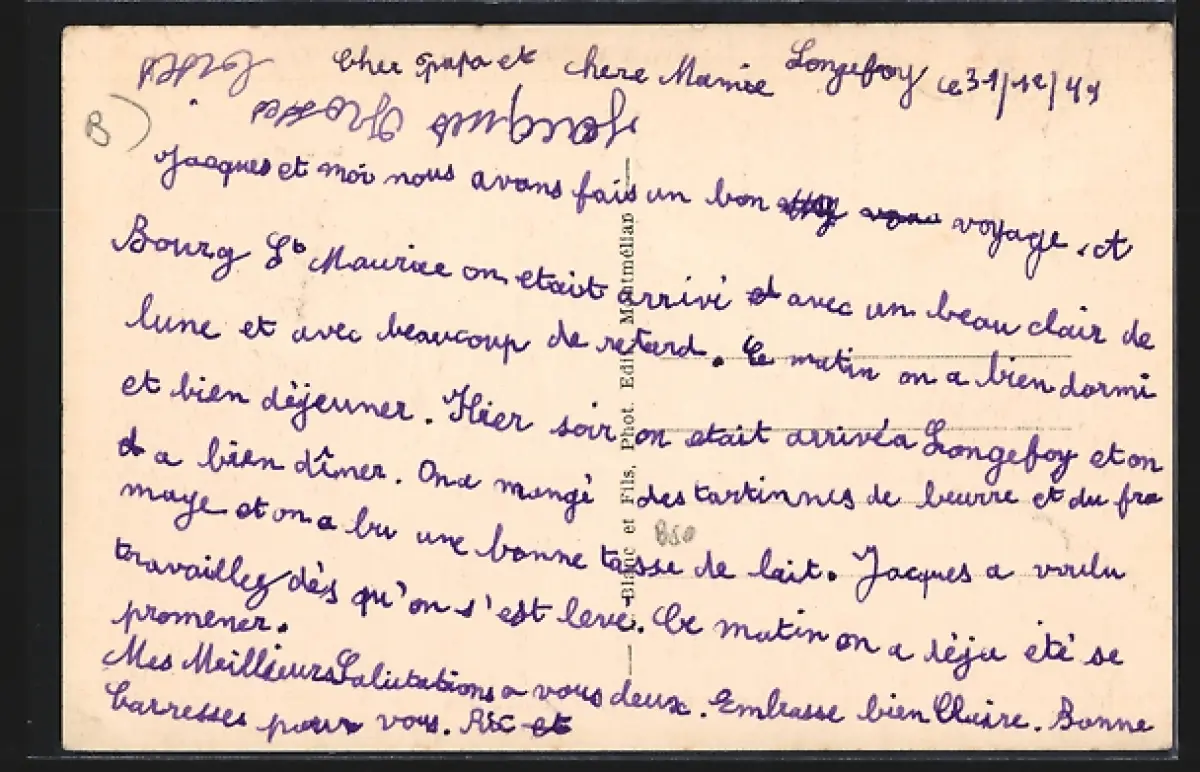 Cher papa et chere Mamie Longefoy le 31/12/49
B)
Jacques et moi nous avons fais un bon voyage. A
Bourg St Maurice on etait arrivé et avec un beau clair de
lune et avec beaucoup de retard. Ce matin on a bien dormi
et bien déjeuner. Hier soir on etait arrivéa Longefoy et on
a bien dîner. On a mangé des tartinnes de beurre et du fro
mage et on a bu une bonne tasse de lait. Jacques a voulu
travailley dès qu'on s'est levé. Ce matin on a déja été se
promener.
Mes Meillieurs Salutations a vous deux. Embrasse bien Claire. Bonne
Carresses pour vous. et
Jacques
Blanc et Fils, Phot. Edit. Montmélian
B50